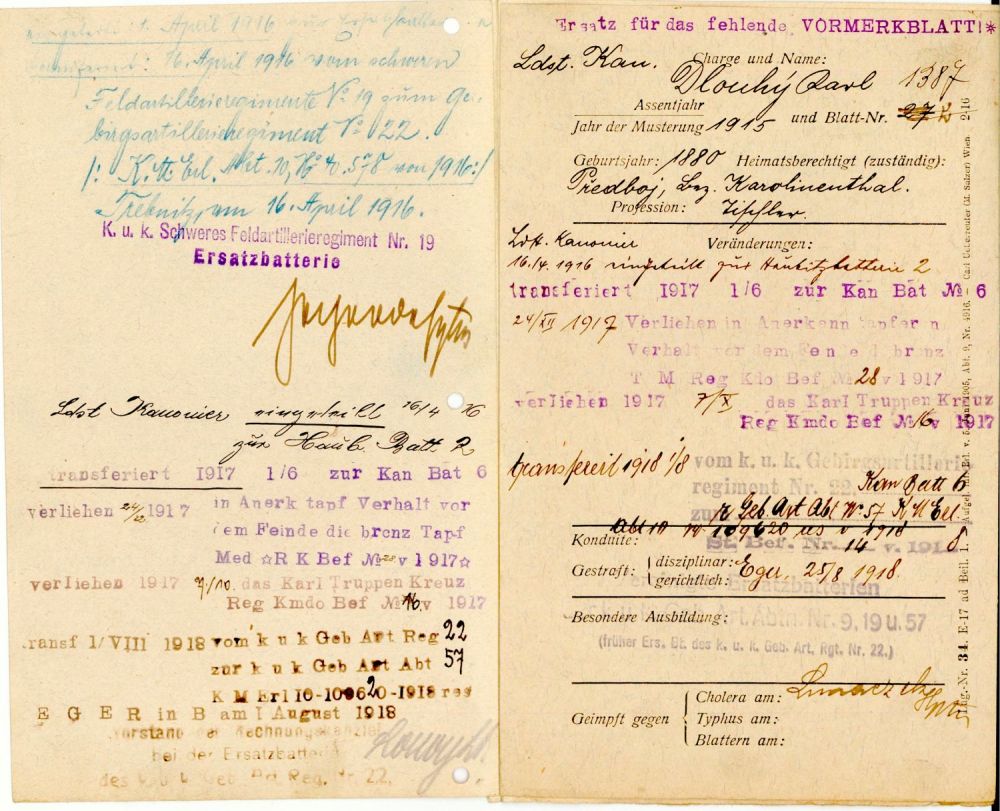 April 1916
transferiert: 16. April 1916 vom schweren
Feldartillerieregimente No 19 zum Ge-
birgsartillerieregiment No 22.
/: K. M. Erl. Abt. 10, No 40.578 von 1916 :/
Trebnitz, am 16. April 1916.
K. u. k. Schweres Feldartillerieregiment Nr. 19
Ersatzbatterie
Ldst Kanonier eingeteilt 16/4 16
zur Haub. Batt. 2
transferiert 1917 1/6 zur Kan Bat 6
verliehen 24/12 1917 in Anerk tapf Verhalt vor
dem Feinde die bronz Tapf
Med ☆R K Bef №28 v 1917☆
verliehen 1917 7/10. das Karl Truppen Kreuz
Reg Kmdo Bef № 16 v 1917
transf 1/VIII 1918 vom k u k Geb Art Reg 22
zur k u k Geb Art Abt 57
K M Erl 10-109620-1918 res
E G E R in B am 1 August 1918
Vorstand der Rechnungskanzlei
bei der Ersatzbatterie
des k u k Geb Art Reg. Nr. 22.
Ersatz für das fehlende VORMERKBLATT!*
Ldst. Kan. Charge und Name:
Dlouhý Karl 1387
Assentjahr
Jahr der Musterung 1915 und Blatt-Nr. 27 2
Geburtsjahr: 1880 Heimatsberechtigt (zuständig):
Předboj, Bez. Karolinenthal.
Profession: Tischler.
Ldst. Kanonier Veränderungen:
16./4. 1916 eingeteilt zur Haubitzbatterie 2
transferiert 1917 1/6 zur Kan Bat № 6
24/XII 1917 Verliehen in Anerkenn tapferen
Verhalt vor dem Feinde d bronz
T M Reg Kdo Bef № 28 v 1917
verliehen 1917 7/X das Karl Truppen Kreuz
Reg Kmdo Bef № 16 v 1917
transfereit 1918 1/8 vom k. u. k. Gebirgsartillerie-
Kan Batt 6
regiment Nr. 22.
zur k Geb. Art Abt No. 57 K M Erl
Abt 10 No 109620 res v 1918
Konduite: St. Bef. Nr. 14 v. 1918 8
Gestraft: disziplinar:
gerichtlich: Eger, 25/8 1918.
Ersatzbatterien
Geb. Art. Abtn. Nr. 9, 19 u. 57
Besondere Ausbildung:
(früher Ers. Bt. des k. u. k. Geb. Art. Rgt. Nr. 22.)
Geimpft gegen
Cholera am:
Typhus am:
Blattern am:
Lag.-Nr. 34. E-17 ad Beil. 1.
Carl Ueberreuter (M. Salzer) Wien 2/16